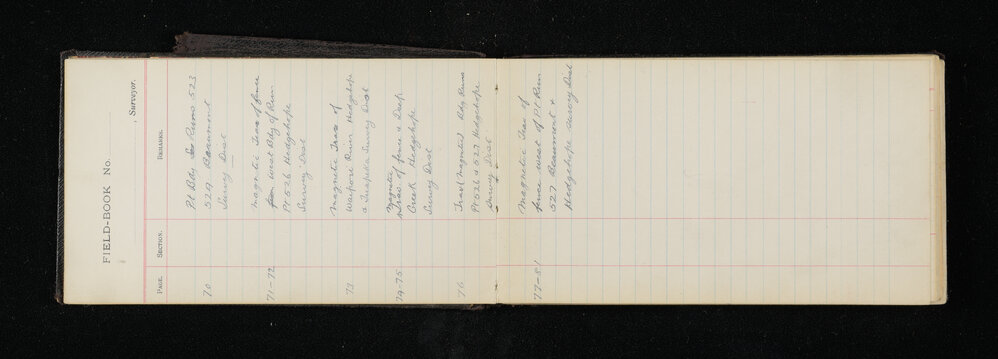 FIELD-BOOK No.
, Surveyor.
PAGE. SECTION. REMARKS.
70 Pt Bdy Runs 523
529 Beaumont
Survey Dist
71-72 Magnetic Trav of fence
west Bdy of Run
Pt 526 Hedgehope
Survey Dist
73 Magnetic Trav of
River Hedgehope
& Survey Dist
74-75 Magnetic
Trav. of fence & Deep
Creek Hedgehope
Survey Dist
76 Trial Magnetic Bdy Runs
Pt 526 & 527 Hedgehope
Survey Dist
77-81 Magnetic Trav of
fence west of Pt Run
527 Beaumont &
Hedgehope Survey Dist